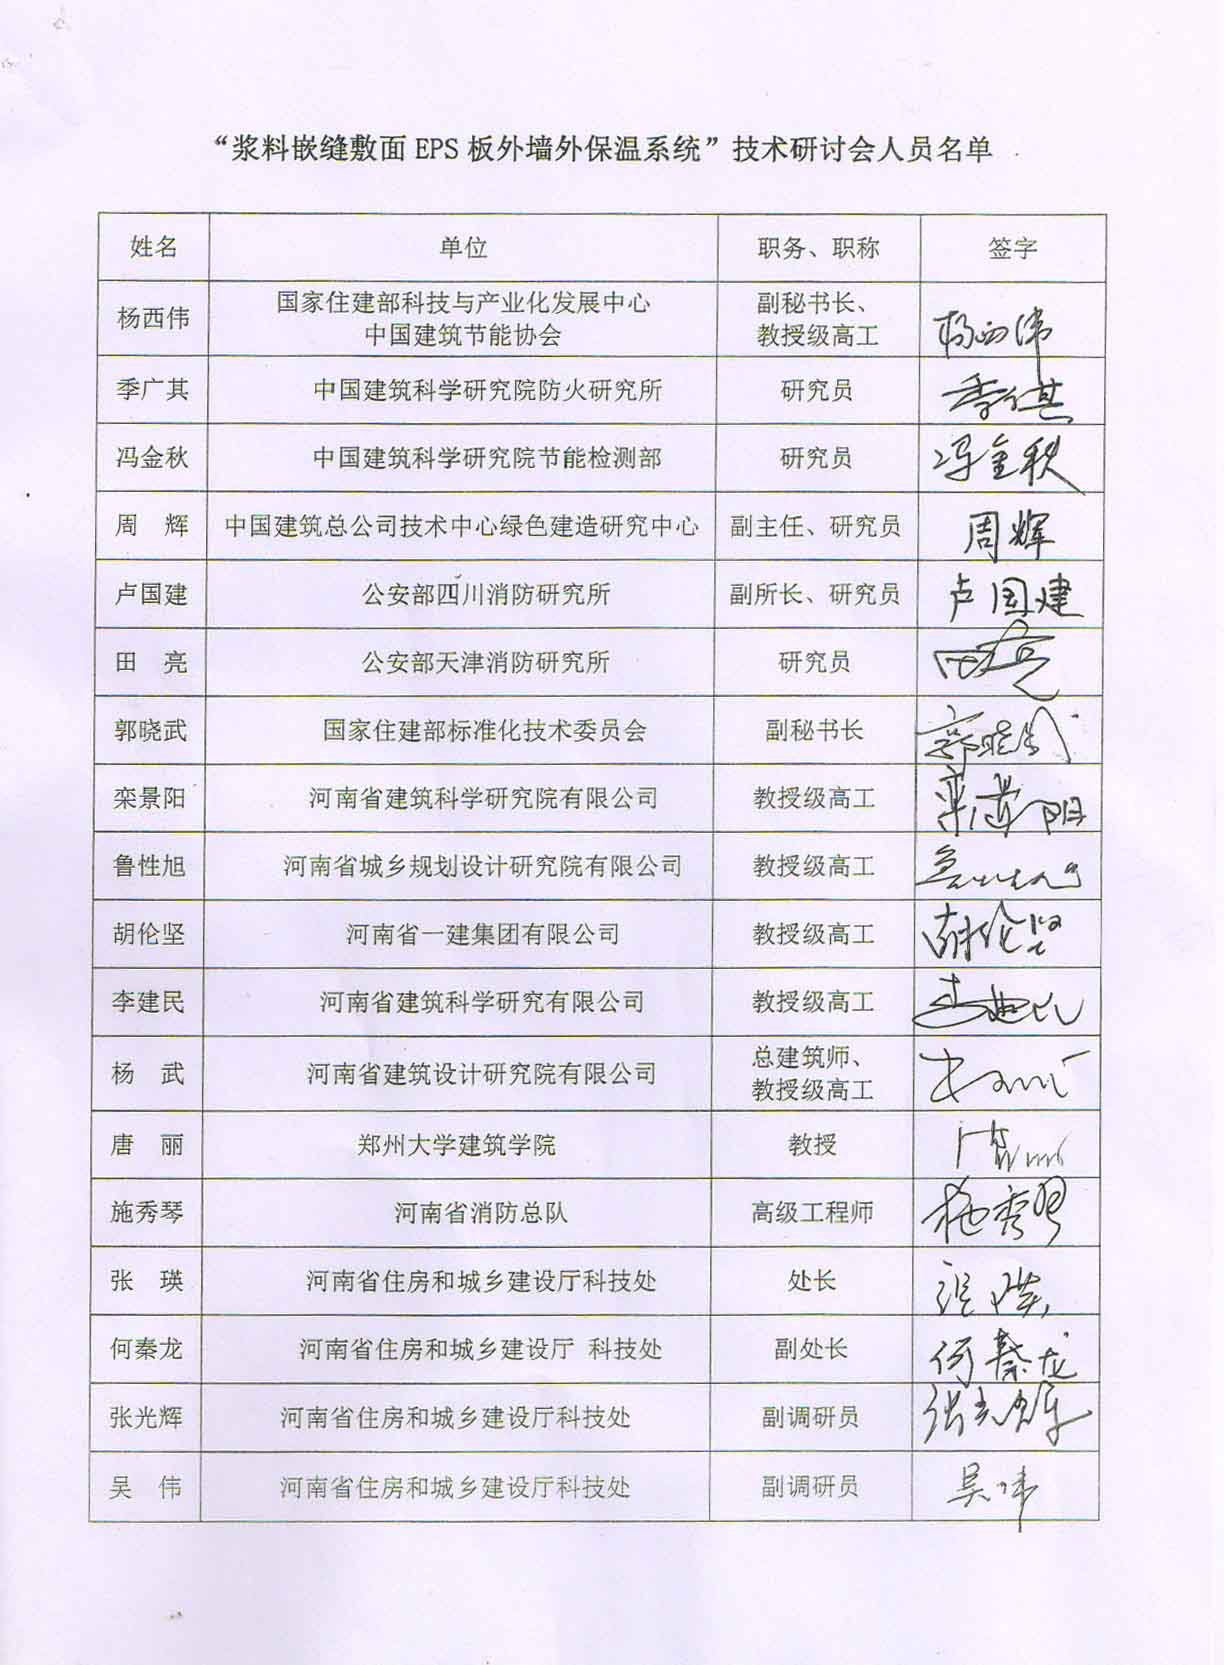 “浆料嵌缝敷面EPS板外墙外保温系统”技术研讨会人员名单
姓名 单位 职务、职称 签字
杨西伟 国家住建部科技与产业化发展中心 中国建筑节能协会 副秘书长、教授级高工 杨西伟
季广其 中国建筑科学研究院防火研究所 研究员 季广其
冯金秋 中国建筑科学研究院节能检测部 研究员 冯金秋
周 辉 中国建筑总公司技术中心绿色建造研究中心 副主任、研究员 周辉
卢国建 公安部四川消防研究所 副所长、研究员 卢国建
田 亮 公安部天津消防研究所 研究员 田亮
郭晓武 国家住建部标准化技术委员会 副秘书长 郭晓武
栾景阳 河南省建筑科学研究院有限公司 教授级高工 栾景阳
鲁性旭 河南省城乡规划设计研究院有限公司 教授级高工
胡伦坚 河南省一建集团有限公司 教授级高工 胡伦坚
李建民 河南省建筑科学研究有限公司 教授级高工 李建民
杨 武 河南省建筑设计研究院有限公司 总建筑师、教授级高工
唐 丽 郑州大学建筑学院 教授
施秀琴 河南省消防总队 高级工程师 施秀琴
张 瑛 河南省住房和城乡建设厅科技处 处长 张瑛
何秦龙 河南省住房和城乡建设厅 科技处 副处长 何秦龙
张光辉 河南省住房和城乡建设厅科技处 副调研员 张光辉
吴 伟 河南省住房和城乡建设厅科技处 副调研员 吴伟